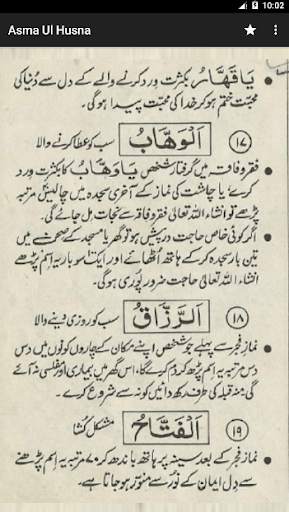 10:02
Asma Ul Husna
یَا قَہَّارُ بکثرت ورد کرنے والے کے دل سے دُنیا کی
محبّت ختم ہو کر خدا کی محبّت پیدا ہوگی۔
۱۷ اَلْوَھَّابُ سب کو عطا کرنے والا
فقر و فاقہ میں گرفتار شخص یَا وَھَّابُ کا بکثرت ورد
کرے یا چاشت کی نماز کے آخری سجدہ میں چالیس مرتبہ
پڑھے تو انشاء اللہ تعالیٰ فقر و فاقہ سے نجات مل جائے گی۔
اگر کوئی خاص حاجت درپیش ہو تو گھر یا مسجد کے صحن میں
تین بار سجدہ کر کے ہاتھ اُٹھائے اور ایک سو بار یہ اسم پڑھے
انشاء اللہ تعالیٰ حاجت ضرور پُوری ہوگی۔
۱۸ اَلرَّزَّاقُ سب کو روزی دینے والا
نمازِ فجر سے پہلے جو شخص اپنے مکان کے چاروں کونوں میں دس
دس مرتبہ یہ اسم پڑھ کر دم کرے گا اس گھر میں بیماری اور مفلسی نہ آئے
گی منہ قبلہ کی طرف رکھے دائیں کونہ سے شروع کرے۔
۱۹ اَلْفَتَّاحُ مشکل کُشا
نمازِ فجر کے بعد سینہ پر ہاتھ باندھ کر ۷۰ مرتبہ یہ اسم پڑھنے
سے دِل ایمان کے نُور سے منوّر ہو جاتا ہے۔